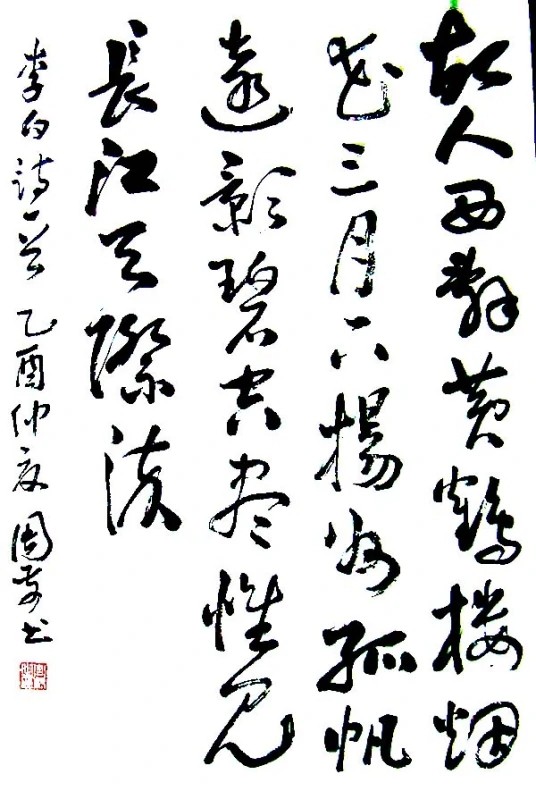 故人西辭黄鶴楼烟
花三月下揚州孤帆
遠影碧空尽惟見
長江天際流
李白詩一首 乙酉仲夏 周书